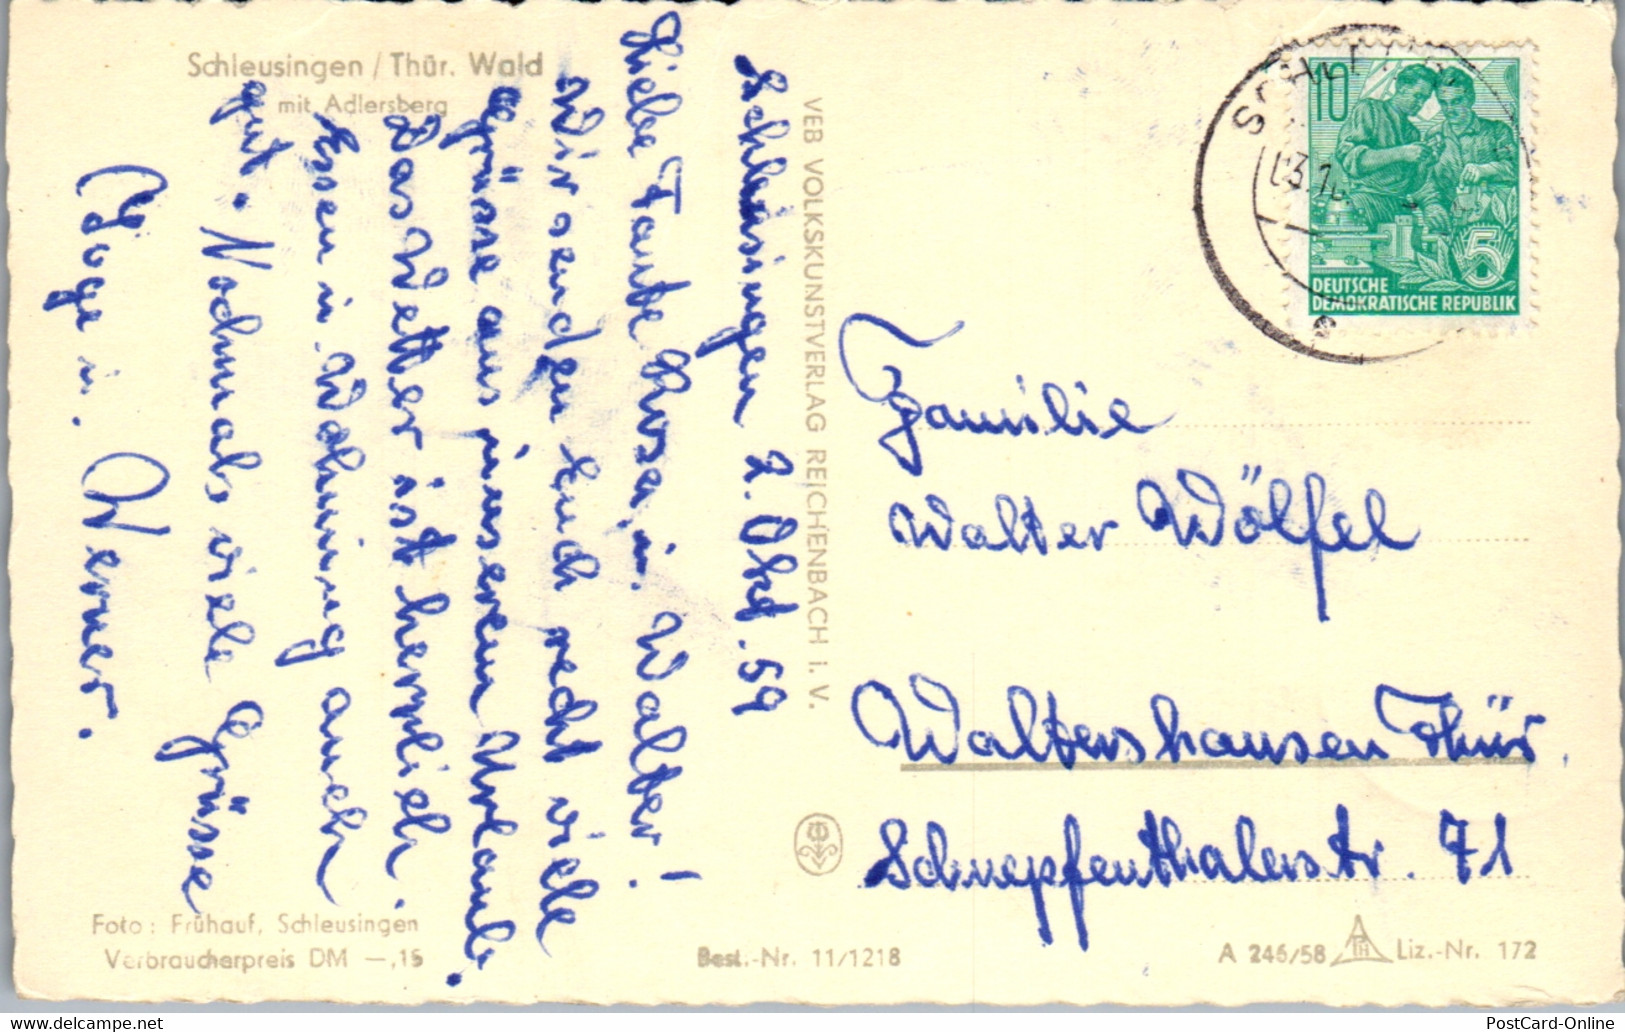 Schleusingen / Thür. Wald
mit Adlersberg
Schleusingen 2. Okt. 59
Liebe Tante Rosa u. Walter!
Wir senden Euch recht viele
Grüsse aus unserem Urlaub.
Das Wetter ist herrlich.
Essen u. Wohnung auch
gut. Nochmals viele Grüsse
Inge u. Werner.
VEB VOLKSKUNSTVERLAG REICHENBACH i. V.
10
5
DEUTSCHE
DEMOKRATISCHE REPUBLIK
Familie
Walter Wölfel
Waltershausen Thür.
Schnepfenthalerstr. 71
Foto: Frühauf, Schleusingen
Verbraucherpreis DM —,15
Best.-Nr. 11/1218
A 246/58
Liz.-Nr. 172
PostCard-Online